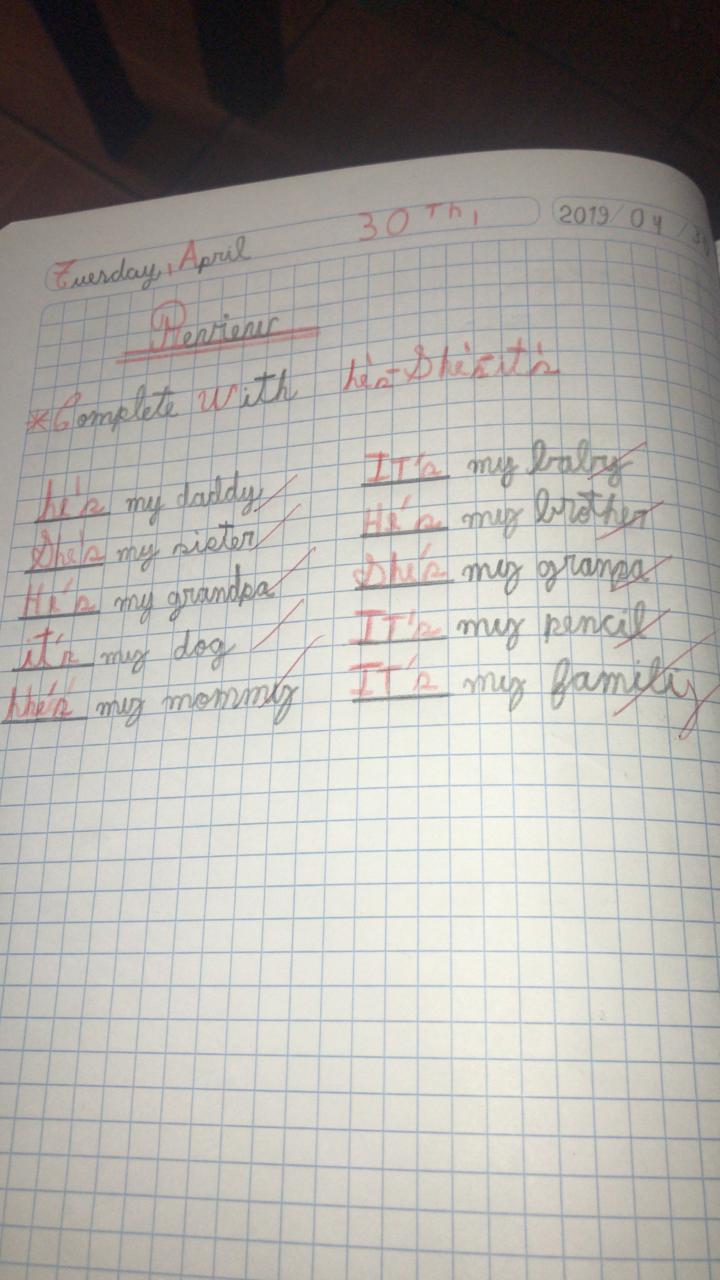 Tuesday, April 30Th, 2019/04/30
Renview
*Complete With he's-She's-it's
he's my daddy
She's my sister
He's my grandpa
it's my dog
she's my mommy
IT's my baby
He's my brother
She's my granpa
IT's my pencil
IT's my family